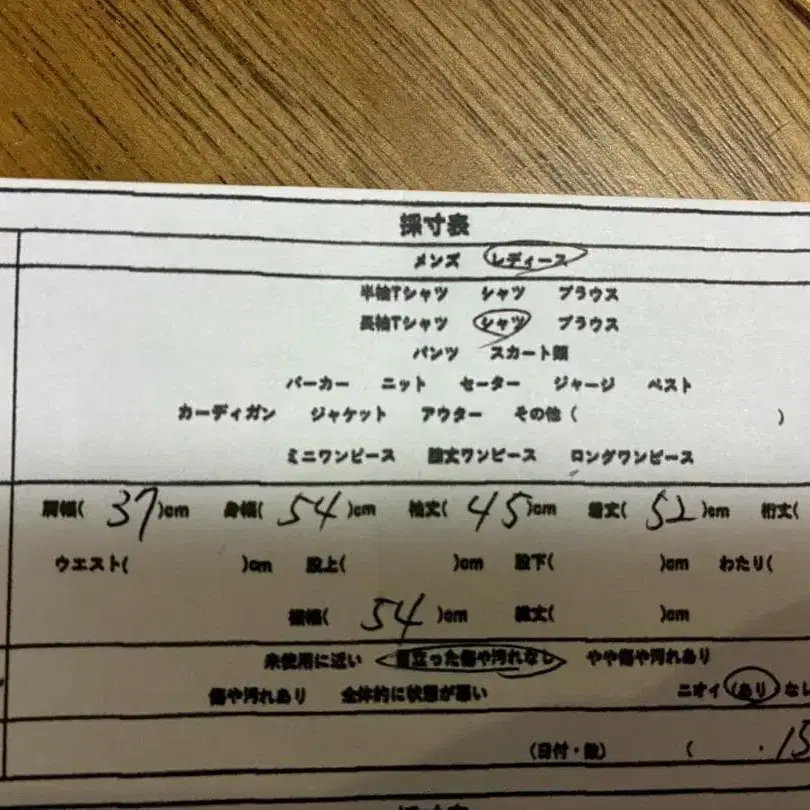 採寸表
メンズ レディース
半袖Tシャツ シャツ ブラウス
長袖Tシャツ シャツ ブラウス
パンツ スカート類
パーカー ニット セーター ジャージ ベスト
カーディガン ジャケット アウター その他( )
ミニワンピース 膝丈ワンピース ロングワンピース
肩幅( 37 )cm 身幅( 54 )cm 袖丈( 45 )cm 着丈( 52 )cm 裄丈(
ウエスト( )cm 股上( )cm 股下( )cm わたり(
裾幅( 54 )cm 総丈( )cm
未使用に近い 目立った傷や汚れなし やや傷や汚れあり
傷や汚れあり 全体的に状態が悪い ニオイ(あり なし
( ・15